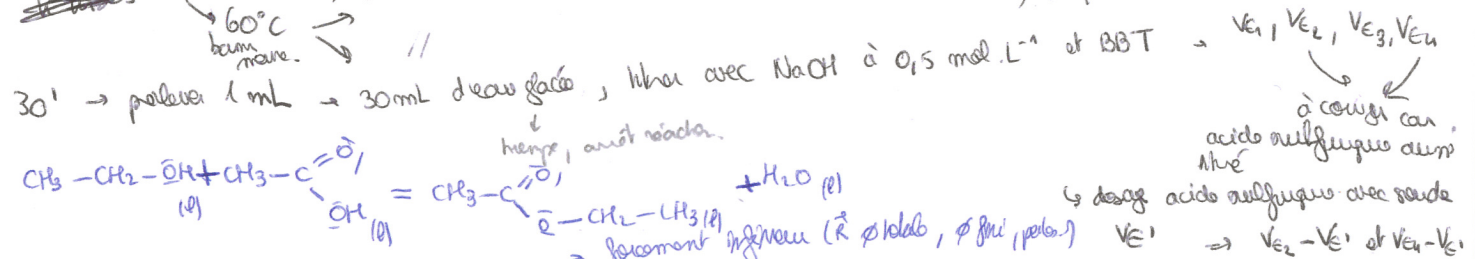 60°C
bain marie.
30' → prelever 1 mL → 30 mL d'eau glacée, titrer avec NaOH à 0,5 mol.L⁻¹ et BBT → VE1, VE2, VE3, VE4
↓
trempe, arrêt réaction.
à corriger car
acide sulfurique aussi
titré
CH3 -CH2 -OH + CH3 -C =O OH (l) (l) = CH3 -C =O O -CH2 -CH3 (l) + H2O (l)
↳ dosage acide sulfurique avec soude
→ forcement inférieur (R ∅ totale, ∅ fini, pertes.) VE' ⇒ VE2 -VE' et VE4 -VE'